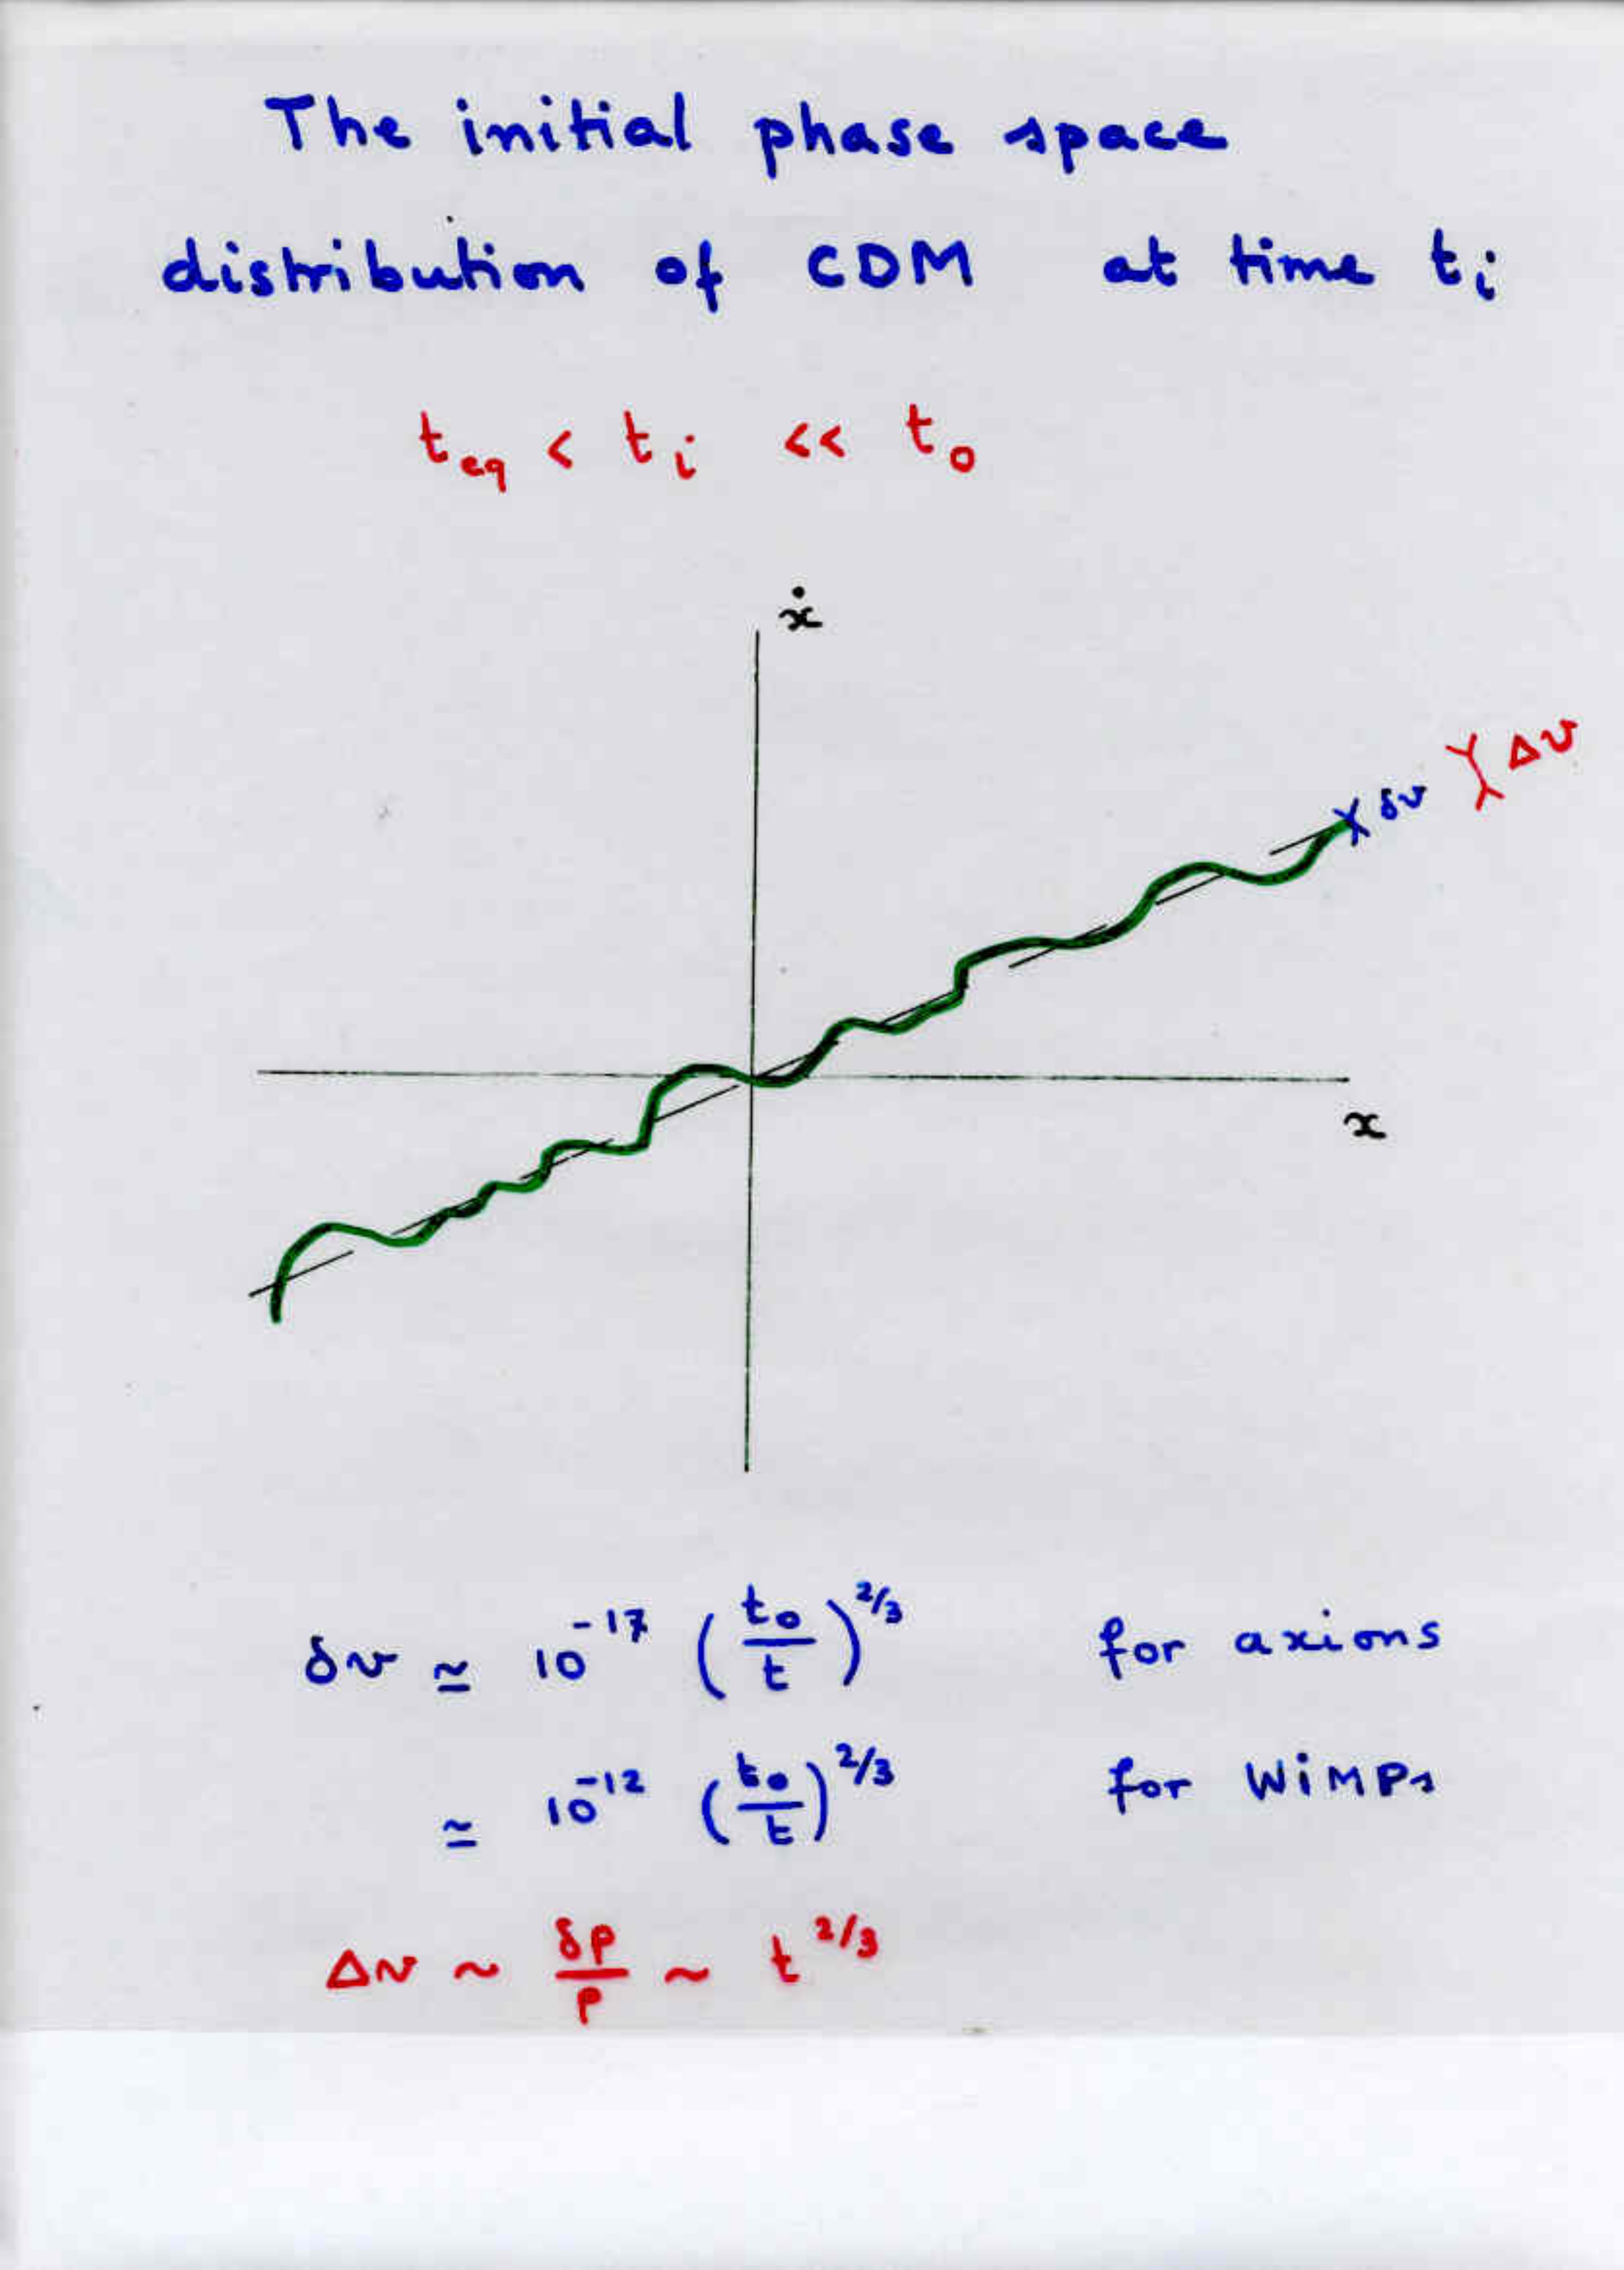 The initial phase space
distribution of CDM at time tᵢ
t_eq < tᵢ << t₀
ẋ
Δv
δv
x
δv ≃ 10⁻¹⁷ (t₀/t)^2/3 for axions
≃ 10⁻¹² (t₀/t)^2/3 for WiMPs
Δv ~ δρ/ρ ~ t^2/3